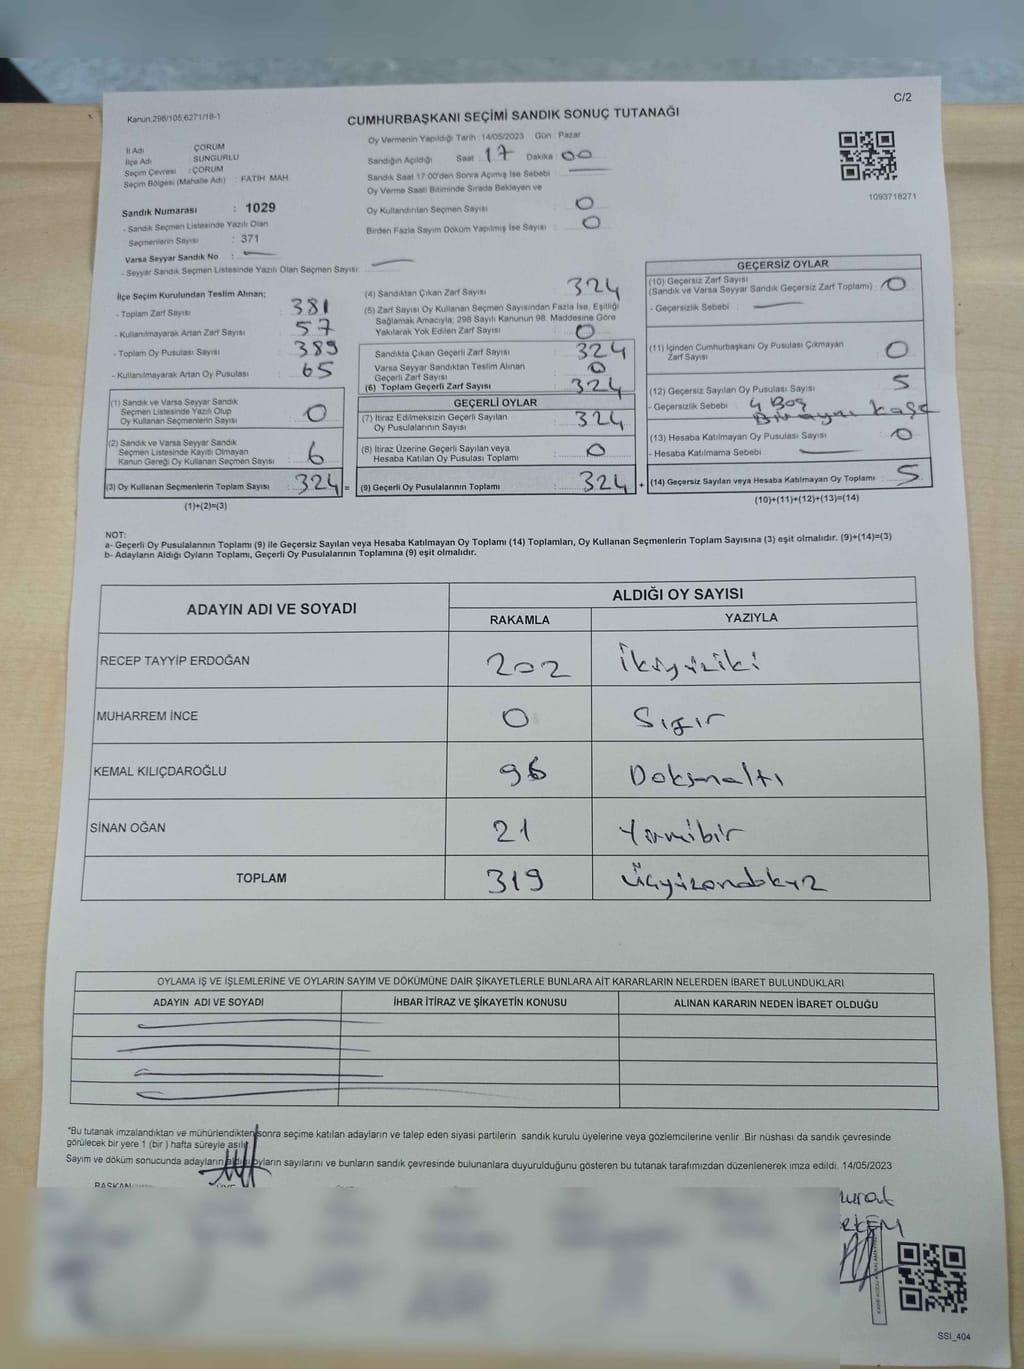 C/2
Kanun.298/105,6271/18-1
CUMHURBAŞKANI SEÇİMİ SANDIK SONUÇ TUTANAĞI
Oy Vermenin Yapıldığı Tarih : 14/05/2023 Gün : Pazar
İl Adı : ÇORUM
İlçe Adı : SUNGURLU
Seçim Çevresi : ÇORUM
Seçim Bölgesi (Mahalle Adı) : FATİH MAH.
Sandığın Açıldığı Saat : 17 Dakika : 00
Sandık Saat 17:00'den Sonra Açımış İse Sebebi :
Oy Verme Saati Bitiminde Sırada Bekleyen ve
Oy Kullandırılan Seçmen Sayısı 0
Birden Fazla Sayım Döküm Yapılmış İse Sayısı : 0
1093718271
Sandık Numarası : 1029
- Sandık Seçmen Listesinde Yazılı Olan
Seçmenlerin Sayısı : 371
Varsa Seyyar Sandık No :
- Seyyar Sandık Seçmen Listesinde Yazılı Olan Seçmen Sayısı:
İlçe Seçim Kurulundan Teslim Alınan;
- Toplam Zarf Sayısı 381
- Kullanılmayarak Artan Zarf Sayısı 57
- Toplam Oy Pusulası Sayısı 389
- Kullanılmayarak Artan Oy Pusulası 65
(1) Sandık ve Varsa Seyyar Sandık
Seçmen Listesinde Yazılı Olup
Oy Kullanan Seçmenlerin Sayısı : 0
(2) Sandık ve Varsa Seyyar Sandık
Seçmen Listesinde Kayıtlı Olmayan
Kanun Gereği Oy Kullanan Seçmen Sayısı : 6
(3) Oy Kullanan Seçmenlerin Toplam Sayısı : 324 =
(1)+(2)=(3)
(4) Sandıktan Çıkan Zarf Sayısı 324
(5) Zarf Sayısı Oy Kullanan Seçmen Sayısından Fazla İse, Eşitliği
Sağlamak Amacıyla; 298 Sayılı Kanunun 98. Maddesine Göre
Yakılarak Yok Edilen Zarf Sayısı 0
Sandıkta Çıkan Geçerli Zarf Sayısı 324
Varsa Seyyar Sandıktan Teslim Alınan
Geçerli Zarf Sayısı 0
(6) Toplam Geçerli Zarf Sayısı 324
GEÇERLİ OYLAR
(7) İtiraz Edilmeksizin Geçerli Sayılan
Oy Pusulalarının Sayısı 324
(8) İtiraz Üzerine Geçerli Sayılan veya
Hesaba Katılan Oy Pusulası Toplamı 0
(9) Geçerli Oy Pusulalarının Toplamı 324 +
GEÇERSİZ OYLAR
(10) Geçersiz Zarf Sayısı
(Sandık ve Varsa Seyyar Sandık Geçersiz Zarf Toplamı) : 0
- Geçersizlik Sebebi :
(11) İçinden Cumhurbaşkanı Oy Pusulası Çıkmayan
Zarf Sayısı 0
(12) Geçersiz Sayılan Oy Pusulası Sayısı 5
- Geçersizlik Sebebi : 4 Boş
Kaşe
(13) Hesaba Katılmayan Oy Pusulası Sayısı 0
- Hesaba Katılmama Sebebi :
(14) Geçersiz Sayılan veya Hesaba Katılmayan Oy Toplamı 5
(10)+(11)+(12)+(13)=(14)
NOT:
a- Geçerli Oy Pusulalarının Toplamı (9) ile Geçersiz Sayılan veya Hesaba Katılmayan Oy Toplamı (14) Toplamları, Oy Kullanan Seçmenlerin Toplam Sayısına (3) eşit olmalıdır. (9)+(14)=(3)
b- Adayların Aldığı Oyların Toplamı, Geçerli Oy Pusulalarının Toplamına (9) eşit olmalıdır.
ADAYIN ADI VE SOYADI
ALDIĞI OY SAYISI
RAKAMLA YAZIYLA
RECEP TAYYİP ERDOĞAN 202 İkiyüziki
MUHARREM İNCE 0 Sıfır
KEMAL KILIÇDAROĞLU 96 Doksanaltı
SİNAN OĞAN 21 Yirmibir
TOPLAM 319 Üçyüzondokuz
OYLAMA İŞ VE İŞLEMLERİNE VE OYLARIN SAYIM VE DÖKÜMÜNE DAİR ŞİKAYETLERLE BUNLARA AİT KARARLARIN NELERDEN İBARET BULUNDUKLARI
ADAYIN ADI VE SOYADI İHBAR İTİRAZ VE ŞİKAYETİN KONUSU ALINAN KARARIN NEDEN İBARET OLDUĞU
"Bu tutanak imzalandıktan ve mühürlendikten sonra seçime katılan adayların ve talep eden siyasi partilerin sandık kurulu üyelerine veya gözlemcilerine verilir .Bir nüshası da sandık çevresinde
görülecek bir yere 1 (bir ) hafta süreyle asılır.
Sayım ve döküm sonucunda adayların aldığı oyların sayılarını ve bunların sandık çevresinde bulunanlara duyurulduğunu gösteren bu tutanak tarafımızdan düzenlenerek imza edildi. 14/05/2023
BAŞKAN
SSI_404